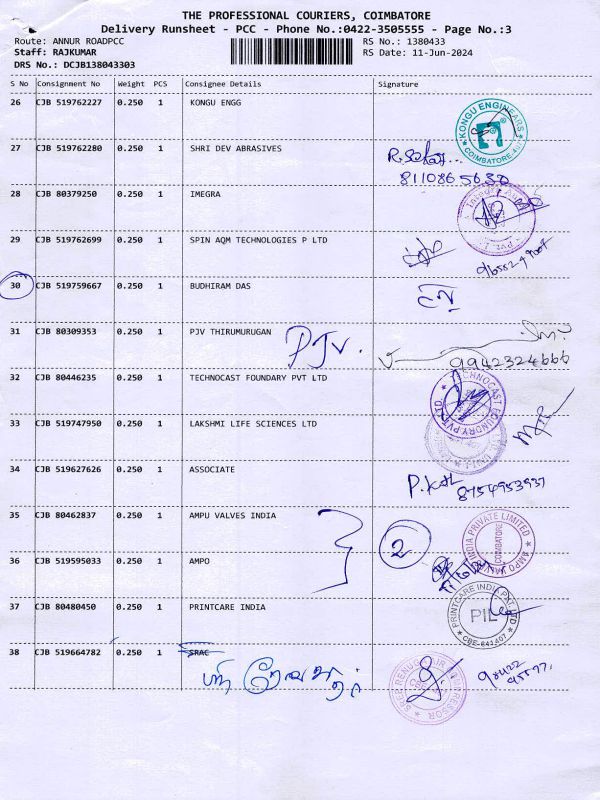 THE PROFESSIONAL COURIERS, COIMBATORE
Delivery Runsheet - PCC - Phone No.:0422-3505555 - Page No.:3
Route: ANNUR ROADPCC RS No.: 1380433
Staff: RAJKUMAR RS Date: 11-Jun-2024
DRS No.: DCJB138043303
S No Consignment No Weight PCS Consignee Details Signature
26 CJB 519762227 0.250 1 KONGU ENGG
KONGU ENGINEARS
COIMBATORE
27 CJB 519762280 0.250 1 SHRI DEV ABRASIVES
8110865630
28 CJB 80379250 0.250 1 IMEGRA
29 CJB 519762699 0.250 1 SPIN AQM TECHNOLOGIES P LTD
30 CJB 519759667 0.250 1 BUDHIRAM DAS
31 CJB 80309353 0.250 1 PJV THIRUMURUGAN PJV.
9942324666
32 CJB 80446235 0.250 1 TECHNOCAST FOUNDARY PVT LTD
TECHNOCAST FOUNDRY PVT LTD
33 CJB 519747950 0.250 1 LAKSHMI LIFE SCIENCES LTD
34 CJB 519627626 0.250 1 ASSOCIATE
8754953937
35 CJB 80462837 0.250 1 AMPU VALVES INDIA 2
AMPO VALVES INDIA PRIVATE LIMITED
COIMBATORE
36 CJB 519595033 0.250 1 AMPO
37 CJB 80480450 0.250 1 PRINTCARE INDIA
PRINTCARE INDIA PVT LTD
PIL
CBE-641407
38 CJB 519664782 0.250 1 SRAC